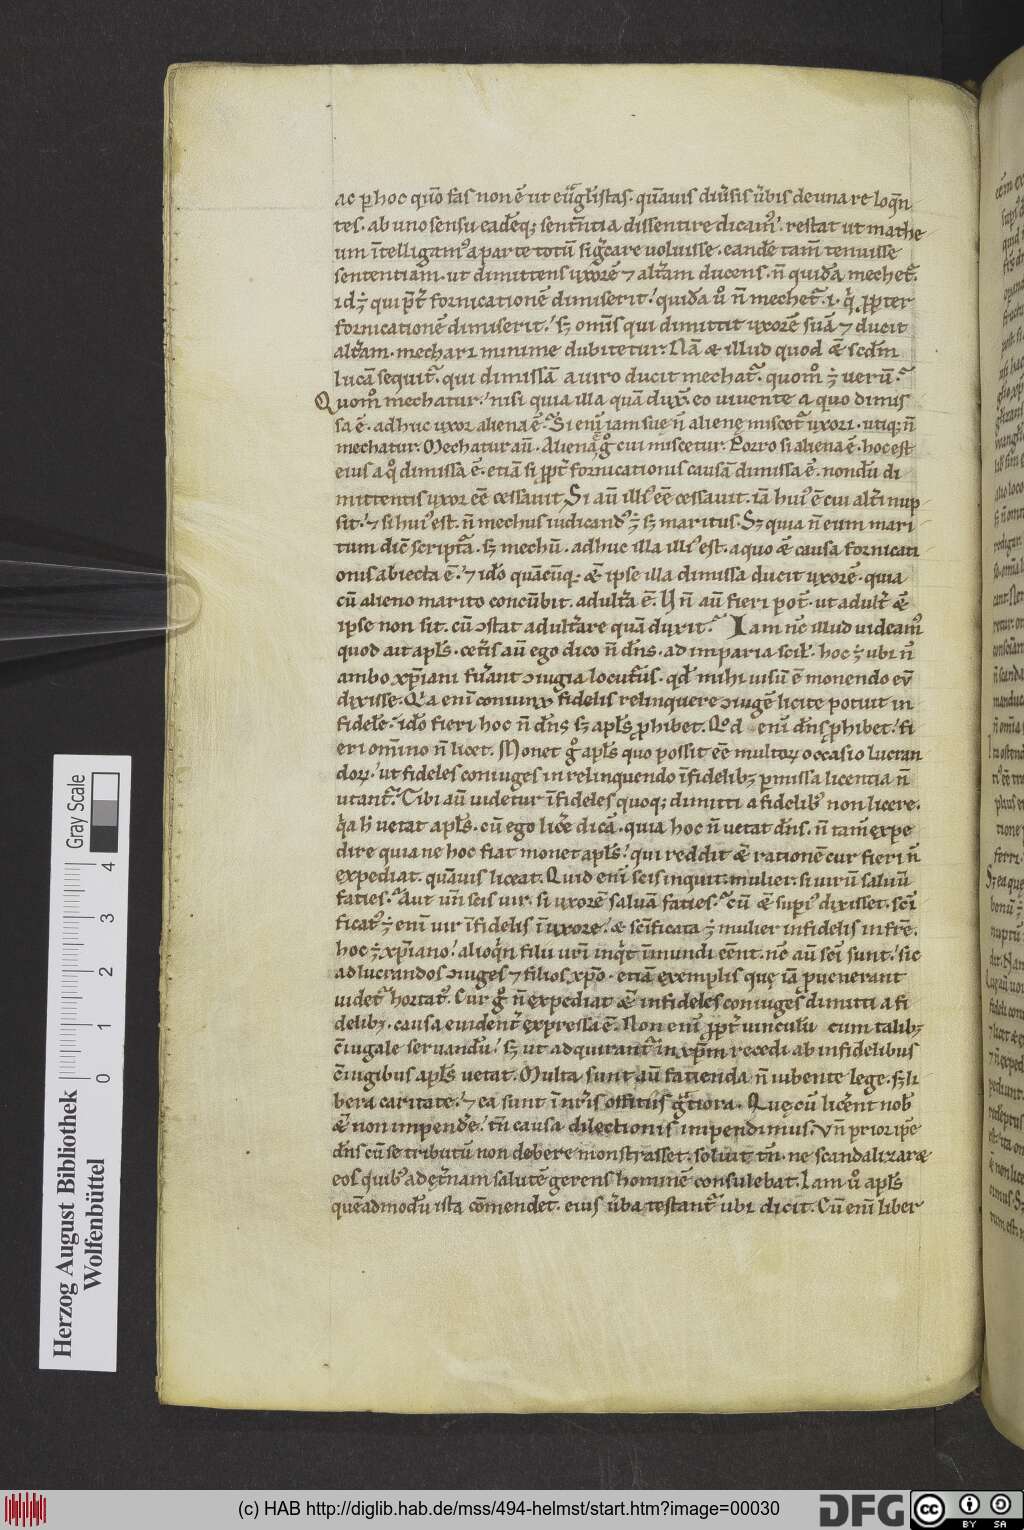 ac ꝑ hoc quō fas non ē ut euu̅gl̓istas. quāuis diu̓sis u̓bis de una re loq̄n
tes. ab uno sensu eadēq; sent̄ntia dissentire dicam᷒. restat ut mathe
um īntelligam᷒ a parte totū sig̓care uoluisse. eandē tam̄ tenuisse
sententiam. ut dimittens uxorē ⁊ alt̓am ducens. n̄ quidā mechet᷑.
idꝫ qui p̄t̓ fornicationē dimiserit! quidā u̓o n̄ mechet᷑.i. q̓ ꝓpter
fornicationē dimiserit! sꝫ omīs qui dimittit uxorē suā ⁊ ducit
alt̓am. mechari minime dubitetur. Nā æ illud quod æ̅ scd̄m
lucā sequit᷑. qui dimissā a uiro ducit mechat᷑. quom̊ ꝫ uerū.
Quom̊ mechatur! nisi quia illa quā dux̄. eo uiuente a quo dimis
sa ē. adhuc uxor aliena ē. Si enī iam suę n̄ alienę miscet᷑ uxori. utiq; n̄
mechatur. Mechatur aū. Aliena ē g̊ cui miscetur. Porro si aliena ē. hoc est
eius a q̊ dimissa ē. etiā si ꝓpt̓ fornicationis causā dimissa ē. nondū di
mittentis uxor eē cessauit. Si aū illi᷒ eē cessauit. iā hui᷒ ē cui alt̓i nup
sit! ⁊ si hui᷒ est. n̄ mechus iudicand᷒ ꝫ sꝫ maritus. Sꝫ quia n̄ eum mari
tum dic̄ script᷑a. sꝫ mechū. adhuc illa illi᷒ est. a quo æ̅ causa fornicati
onis abiecta ē! ⁊ id̓o quācūq; æ̅ ipse illa dimissa ducit uxorē. quia
cū alieno marito concūbit. adult̓a ē. H̓ n̄ aū fieri pot̄. ut adult̓ æ̅
ipse non sit. cū ꝯstat adult̓are quā duxit. Iam nc̄ illud uideam᷒
quod ait apl̄s. cet̓is aū ego dico n̄ dn̄s. ad imparia scil̓. hoc ꝫ ubi n̄
ambo xp̄iani fu̓ant ꝯiugia locut᷒us. qd̓ mihi uisū ē monendo eū
dixisse. Q̓a enī coniunx fidelis relinquere ꝯiugē licite potuit in
fidelē! id̓o fieri hoc n̄ dn̄s sꝫ apl̄s ꝓhibet. Qd̓ enī dn̄s ꝓhibet! fi
eri om̄ino n̄ licet. Monet g̊ apl̄s quo possit eē multoꝝ occasio lucran
doꝝ! ut fideles coniuges in relinquendo īfidelibꝫ ꝑmissa licentia n̄
utant᷑. Tibi aū uidetur īfideles quoq; dimitti a fidelib᷒ non licere.
q̓a h̓ uetat apl̄s. cū ego licēe dicā. quia hoc n̄ uetat dn̄s. n̄ tam̄ expe
dire quia ne hoc fiat monet apl̄s! qui reddit æ̅ rationē cur fieri n̄
expediat. quāuis liceat. Quid enī scis inquit. mulier. si uirū saluū
faties. Aut un̄ scis uir. si uxorē saluā faties. cū æ sup̓i᷒ dixisset. sc̄i
ficat᷒ ꝫ enī uir īfidelis ī uxore! æ sc̄ificata ꝫ mulier infidelis in fr̄e.
hoc ꝫ xp̄iano! alioq̄n filii ur̄i inq̓t īmundi eēnt. nc̄ aū sc̄i sunt! sic
ad lucrandos ꝯiuges ⁊ filios xp̄o. etiā exemplis quę iā puenerant
uidet᷑ hortat᷒. Cur g̊ n̄ expediat æ̅ infideles coniuges dimitti a fi
delibꝫ. causa euident̓ expressa ē. Non enī ꝓpt̓ uinculū cum talibꝫ
ꝯ̄iugale seruandū! sꝫ ut adquirant᷑ in xp̄m recedi ab infidelibus
ꝯ̄iugibus apl̄s uetat. Multa sunt aū fatienda n̄ iubente lege. sꝫ li
bera caritate! ⁊ ea sunt ī nr̄is offitiis g̓tiora. Quę cū licēent nob̓
æ̅ non inpendēe! tn̄ causa dilectionis inpendimus. Vn̄ prior ip̄e
dn̄s cū se tributū non debere monstrasset. soluit tn̄. ne scandalizaræ
eos quib᷒ ad ęt̓nam salutē gerens hominē consulebat. Iam u̓o apl̄s
quēadmodū ista cōmendet. eius u̓ba testant᷑ ubi dicit. Cū enī liber
Herzog August Bibliothek
Wolfenbüttel
Gray Scale
0 1 2 3 4
(c) HAB http://diglib.hab.de/mss/494-helmst/start.htm?image=00030
DFG
cc BY SA